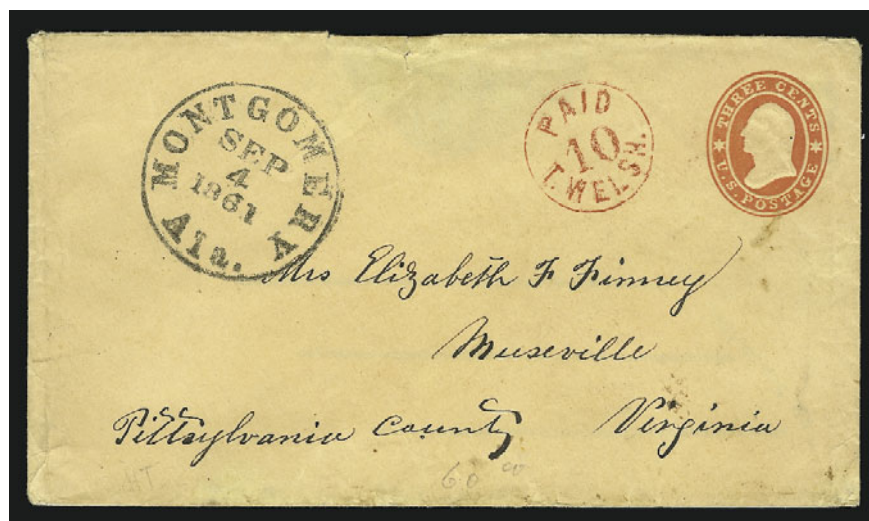 MONTGOMERY
SEP
4
1861
Ala.
PAID
10
T. WELSH.
THREE CENTS
U.S. POSTAGE
Mrs Elizabeth F Finney
Museville
Pittsylvania County Virginia
HT
60 00